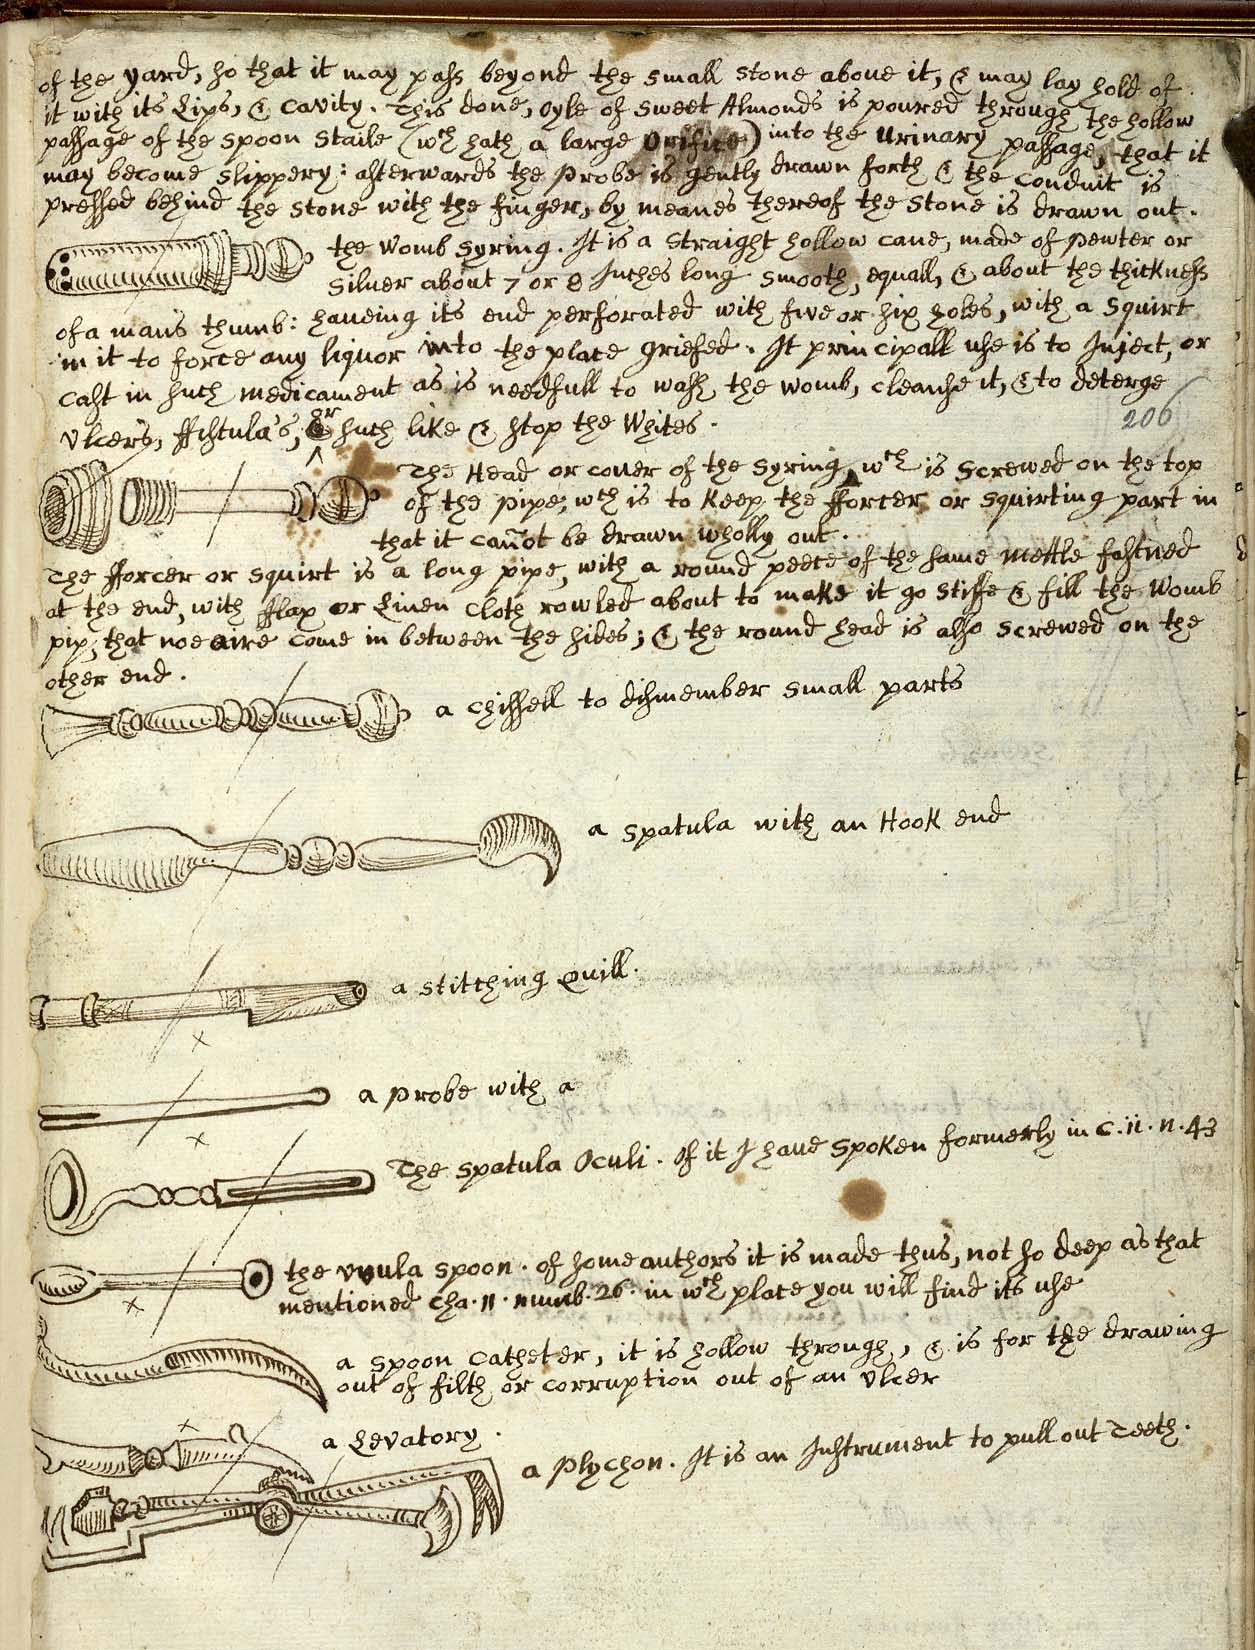 of the yard, so that it may pass beyond the small stone aboue it, & may lay hold of
it with its Lips, & cavity. This done, oyle of sweet Almonds is poured through the hollow
passage of the spoon staile (wch hath a large Orifice) into the Urinary passage, that it
may become slippery: afterwards the probe is gently drawn forth & the conduit is
pressed behind the stone with the finger, by meanes thereof the stone is drawn out.
the Womb syring. It is a straight hollow cane, made of pewter or
silver about 7 or 8 Inches long smooth, equall, & about the thickness
of a mans thumb: haueing its end perforated with five or six holes, with a squirt
in it to force any liquor into the place griefed. It principall use is to Inject, or
cast in such medicament as is needfull to wash the womb, cleanse it, & to deterge
206
Ulcers, ffistula's, or such like & stop the Whites.
The Head or couer of the syring, wch is screwed on the top
of the pipe, wch is to keep the fforcer or squirting part in
that it cañot be drawn wholly out.
The fforcer or squirt is a long pipe, with a round peece of the same mettle fastned
at the end, with fflax or Linen cloth rowled about to make it go stiffe & fill the Womb
pip; that noe aire come in between the sides; & the round head is also screwed on the
other end.
a chissell to dismember small parts
a spatula with an Hook end
a stitching Quill.
a probe with a
The spatula Oculi. Of it I haue spoken formerly in c. 11. n. 43
the Uvula spoon. of some authors it is made thus, not so deep as that
mentioned cha. 11. numb. 26. in wch place you will find its use
a spoon Catheter, it is hollow through, & is for the drawing
out of filth or corruption out of an Ulcer
a Levatory.
a Plychon. It is an Instrument to pull out Teeth.